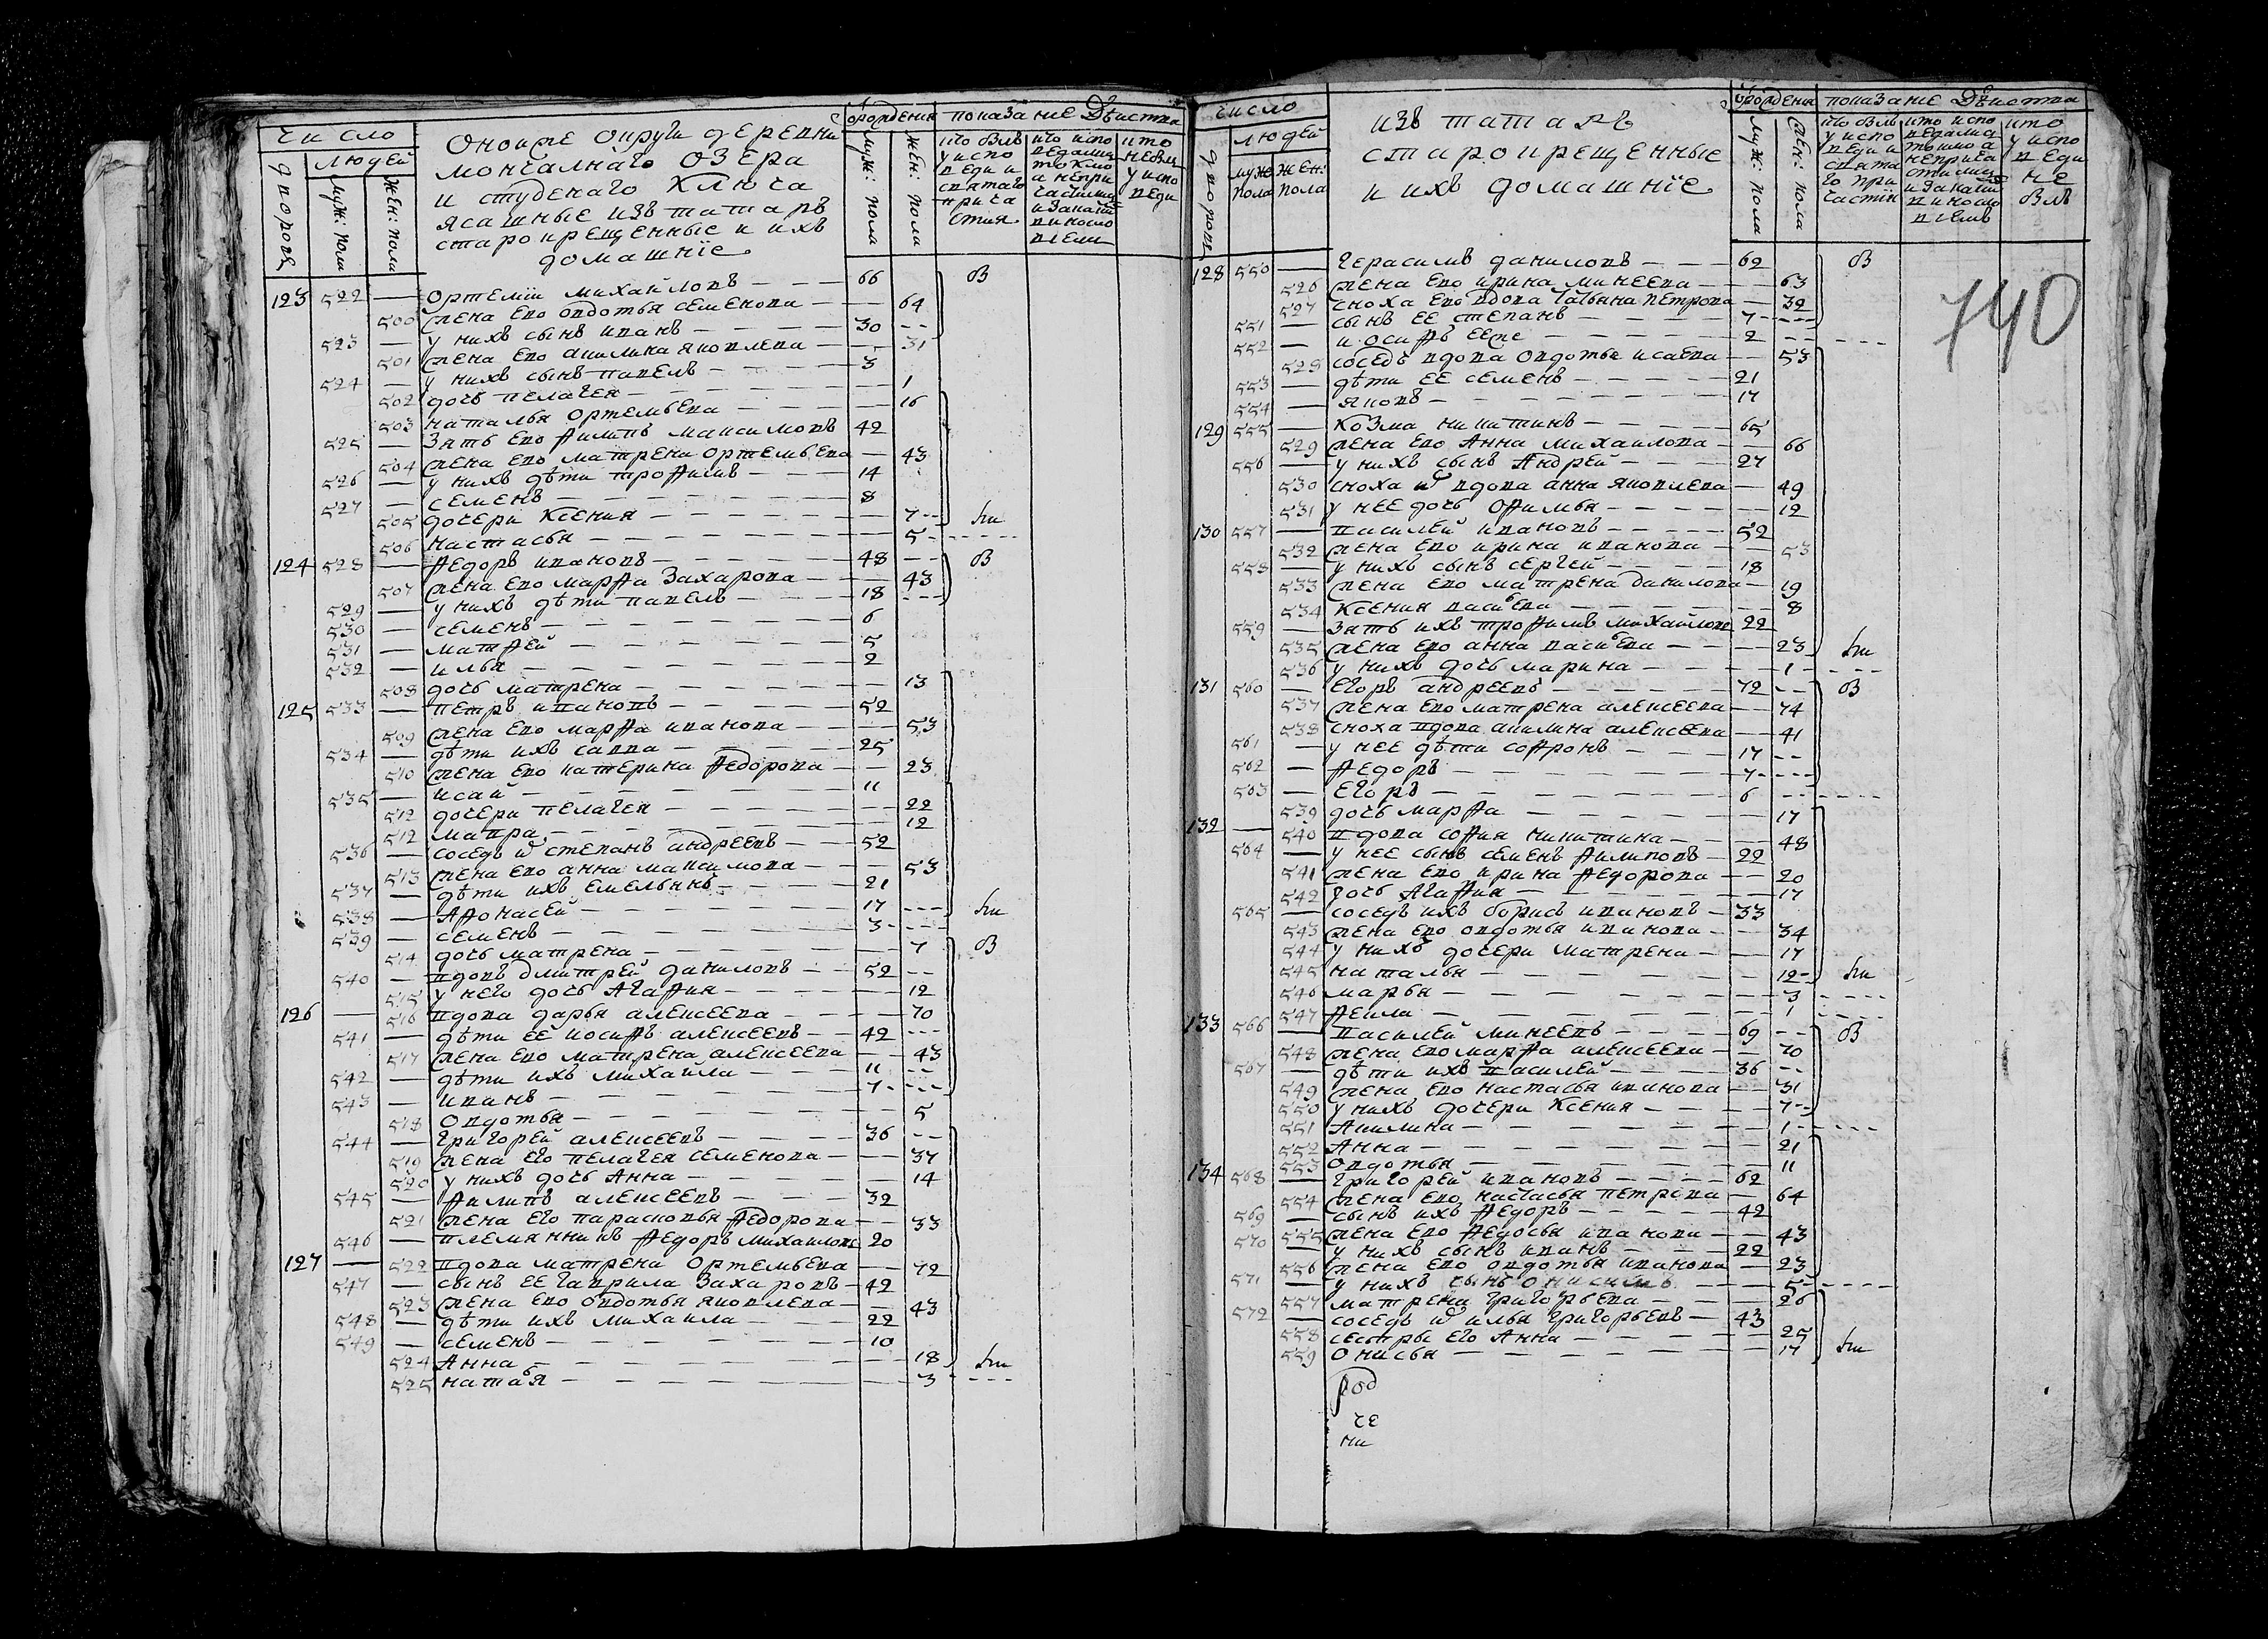 число
дворовъ
людей
муж: пола
жен: пола
Оноиже округи деревни
монгалнаго озера
и студенаго Ключа
ясашные изъ татаръ
старокрещенные и ихъ
домашніе
муж: пола
жен: пола
показание Действа
кто былъ
у испо
веди и
святаго
прича
стия
кто испо
ведался
токмо
а непри
частился
кто
небылъ
у испо
веди
123 522 — Ортемїи михайловъ — 66 б
500 жена его овдотья семенова — 64
523 — у нихъ сынъ иванъ — 30
501 жена его акилина яковлева — 31
524 — у нихъ сынъ павелъ — 3
502 дочь пелагея — 1
503 наталья ортемьева — 16
525 — Зять его филипъ максимовъ 42
504 жена его матрена ортемьева — 43
526 — у нихъ дѣти трофимъ — 14
527 — семенъ — 8
505 дочери Ксения — 7
506 настасья — 5
124 528 — федоръ ивановъ — 48 б
507 жена его марфа Захарова — 43
529 — у нихъ дѣти павелъ — 18
530 — семенъ — 6
531 — матфей — 5
532 — илья — 2
508 дочь матрена — 13
125 533 — петръ ивановъ — 52
509 жена его марфа иванова — 53
534 — дѣти ихъ савва — 25
510 жена его катерина федорова — 23
535 — исай — 11
512 дочери пелагея — 22
512 мавра — 12
536 — соседъ ѿ степанъ андреевъ — 52
513 жена его анна максимова — 53
537 — дѣти ихъ емельянъ — 21
538 — Афонасей — 17
539 — семенъ — 3
514 дочь матрена — 7 б
540 — вдовъ дмитрей даниловъ — 52
515 у него дочь Агафия — 12
126 — 516 вдова дарья алексеева — 70
541 — дѣти ее иосифъ алексеевъ — 42
517 жена его матрена алексеева — 43
542 — дѣти ихъ михаила — 11
543 — иванъ — 7
518 Овдотья — 5
544 — григорей алексеевъ — 36
519 жена его пелагея семенова — 37
520 у нихъ дочь Анна — 14
545 — филипъ алексеевъ — 32
521 жена его парасковья федорова — 33
546 — племянникъ федоръ михаиловъ 20
127 — 522 вдова матрена Ортемьева — 72
547 — сынъ ее гаврила Захаровъ — 42
523 жена его овдотья яковлева — 43
548 — дѣти ихъ михаила — 22
549 — семенъ — 10
524 Анна — 18
525 натаья — 3
число
дворовъ
людей
муже пола
жен: пола
изъ татаръ
старокрещенные
и ихъ домашніе
муж: пола
жен: пола
показание Действа
кто былъ
у испо
веди и
свята
го при
частия
кто
у испо
веди
не
былъ
740
128 550 — герасимъ даниловъ — 62 б
526 жена его ирина минеева — 63
527 сноха его вдова татьяна петрова — 32
551 — сынъ ее степанъ — 7
552 — иосифъ ееже — 2
528 соседъ вдова овдотья исаева — 53
553 — дѣти ее семенъ — 21
554 — яковъ — 17
129 555 — Козма никитинъ — 65
529 жена его Анна михаилова — 66
556 — у нихъ сынъ Андрей — 27
530 сноха ѿ вдова анна яковлева — 49
531 у нее дочь Офимья — 12
130 557 — василей ивановъ — 52
532 жена его ирина иванова — 53
558 — у нихъ сынъ сергей — 18
533 жена его матрена данилова — 19
534 Ксения васиьева — 8
559 — зять ихъ трофимъ михайловъ 22
535 жена его анна васиьева — 23
536 у нихъ дочь марина — 1
131 560 — Егоръ андреевъ — 72 б
537 жена его матрена алексеева — 74
538 сноха вдова акилина алексеева — 41
561 — у нее дѣти софронъ — 17
562 — федоръ — 7
563 — Егоръ — 6
539 дочь марфа — 17
132 — 540 вдова софия никитина — 48
564 — у нее сынъ семенъ филиповъ — 22
541 жена его ирина федорова — 20
542 дочь Агафия — 17
565 — соседъ ихъ борисъ ивановъ — 33
543 жена его овдотья иванова — 34
544 у нихъ дочери матрена — 17
545 наталья — 12
546 марья — 3
547 фекла — 1
133 566 — василей минеевъ — 69 б
548 жена его марфа алексеева — 70
567 — дѣти ихъ василей — 36
549 жена его настасья иванова — 31
550 у нихъ дочери Ксения — 7
551 Акилина — 1
552 Анна — 21
553 Овдотья — 11
134 568 — григорей ивановъ — 62
554 жена его настасья петрова — 64
569 — сынъ ихъ федоръ — 42
555 жена его федосья иванова — 43
570 — у нихъ сынъ иванъ — 22
556 жена его овдотья иванова — 23
571 — у нихъ сынъ онисимъ — 5
557 матрена григорьева — 26
572 — соседъ ѿ илья григорьевъ — 43
558 сестры его Анна — 25
559 Онисья — 17
род
че
ни